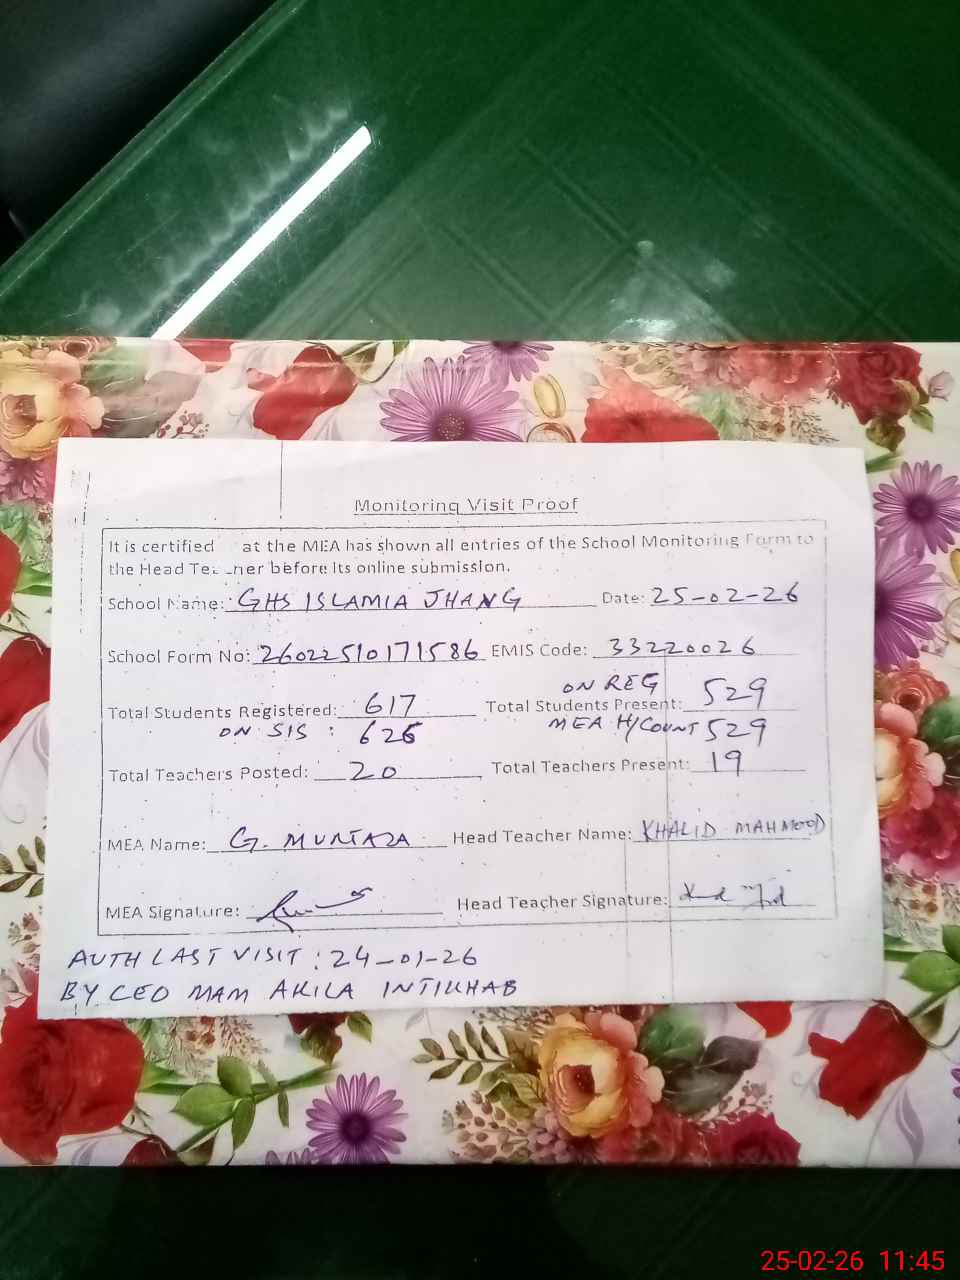 Monitoring Visit Proof
It is certified at the MEA has shown all entries of the School Monitoring Form to
the Head Teacher before its online submission.
School Name: GHS ISLAMIA JHANG Date: 25-02-26
School Form No: 26022510171586 EMIS Code: 33220026
ON REG
Total Students Registered: 617 Total Students Present: 529
ON SIS : 626 MEA H/COUNT 529
Total Teachers Posted: 20 Total Teachers Present: 19
MEA Name: G. MURTAZA Head Teacher Name: KHALID MAHMOOD
MEA Signature: Head Teacher Signature:
AUTH LAST VISIT : 24-01-26
BY CEO MAM AKILA INTIKHAB
25-02-26 11:45